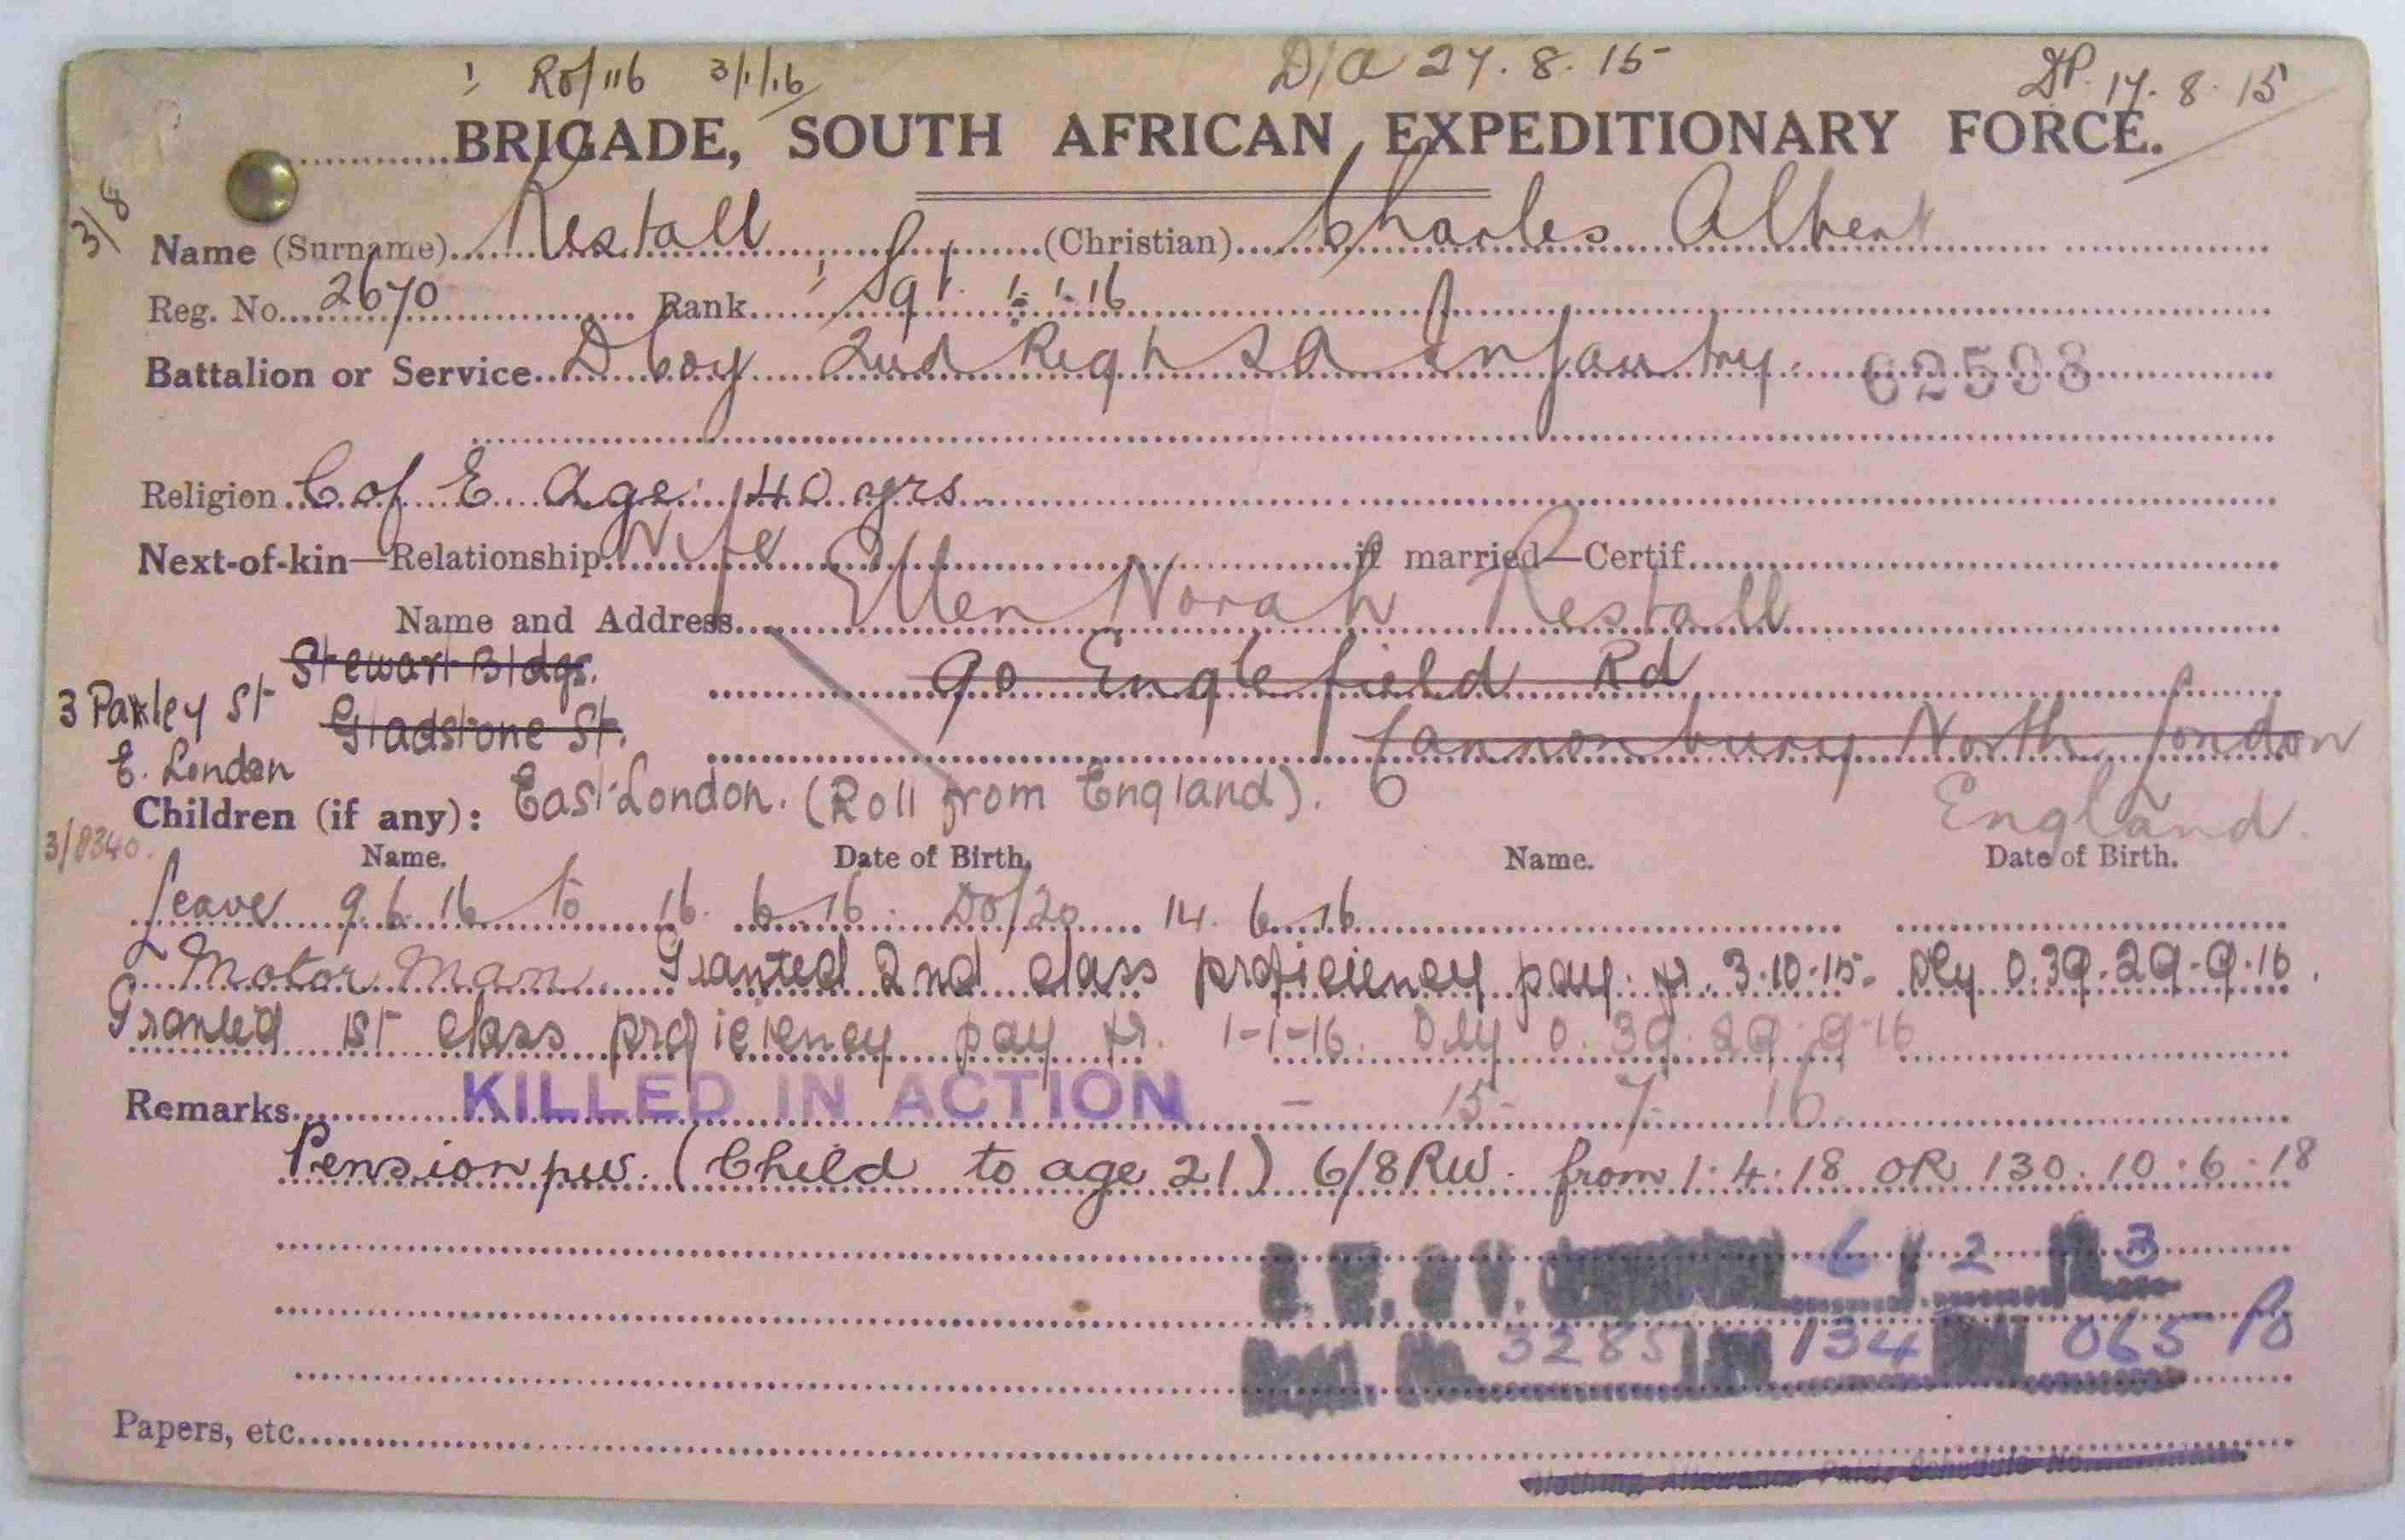 ! Ro/116 3/1/16 D/A 27.8.15 DP. 17.8.15
BRIGADE, SOUTH AFRICAN EXPEDITIONARY FORCE.
3/8
Name (Surname) Restall (Christian) Charles Albert
Reg. No. 2670 Rank Sgt. 1.1.16
Battalion or Service D Coy 2nd Regt S A Infantry. 62598
Religion C of E Age: 40 yrs
Next-of-kin—Relationship Wife if married—Certif.
Name and Address Ellen Norah Restall
Stewart Bldgs. 90 Englefield Rd
3 Paxley St Gladstone St. Cannonbury North London
E. London
Children (if any): East London. (Roll from England). England.
3/8340. Name. Date of Birth. Name. Date of Birth.
Leave 9.6.16 to 16.6.16. DO/20 14.6.16
Motor Man. Granted 2nd class proficiency pay fr. 3.10.15. Dly O.39.29.9.16.
Granted 1st class proficiency pay fr. 1-1-16. Dly O.39.29.9.16
Remarks KILLED IN ACTION - 15- 7- 16.
Pension pw. (Child to age 21) 6/8 RW. from 1.4.18 OR 130.10.6.18
6 / 2 3
Regn. No. 3285 134 065
Papers, etc.
Clothing Allowance Paid, Schedule No.